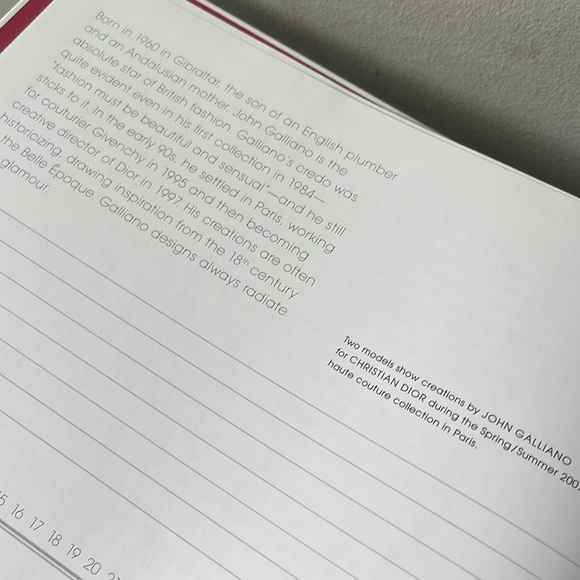 Born in 1960 in Gibraltar, the son of an English plumber
and an Andalusian mother, John Galliano is the
absolute star of British fashion. Galliano's credo was
quite evident even in his first collection in 1984—
"fashion must be beautiful and sensual"—and he still
sticks to it. In the early 90s, he settled in Paris, working
for couturier Givenchy in 1995 and then becoming
creative director of Dior in 1997. His creations are often
historicizing, drawing inspiration from the 18th century
the Belle Époque. Galliano designs always radiate
glamour.
Two models show creations by JOHN GALLIANO
for CHRISTIAN DIOR during the Spring/Summer
haute couture collection in Paris.
16 17 18 19 20